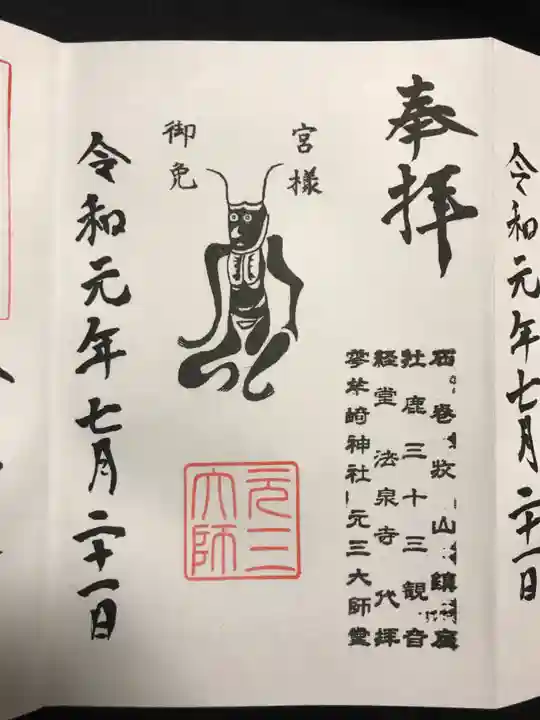 令和元年七月二十一日
奉拝
石巻牧山鎮座
牡鹿三十三観音
経堂法泉寺代拝
零羊崎神社元三大師堂
宮様
御免
元三
大師
令和元年七月二十一日